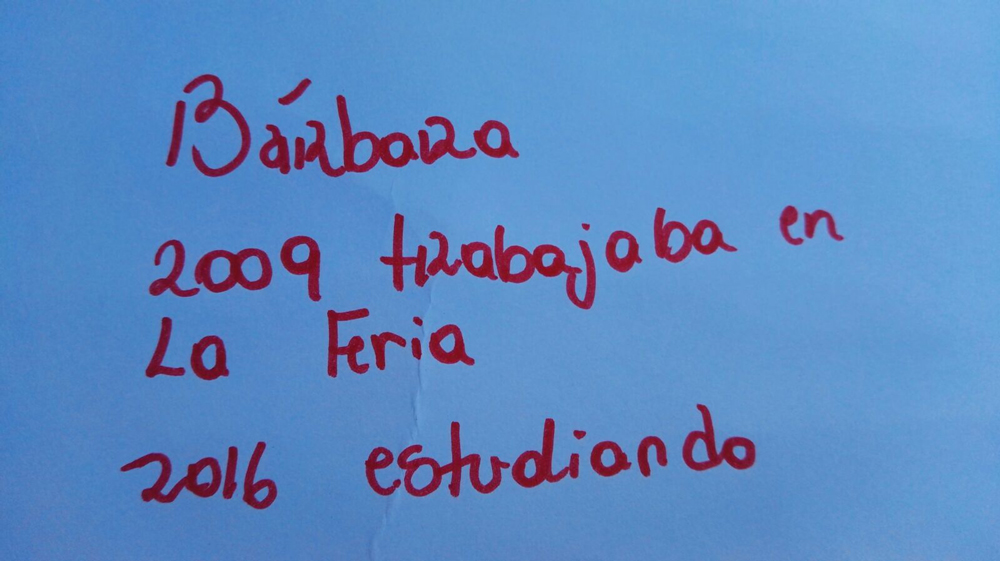 Bárbara
2009 trabajaba en
La Feria
2016 estudiando